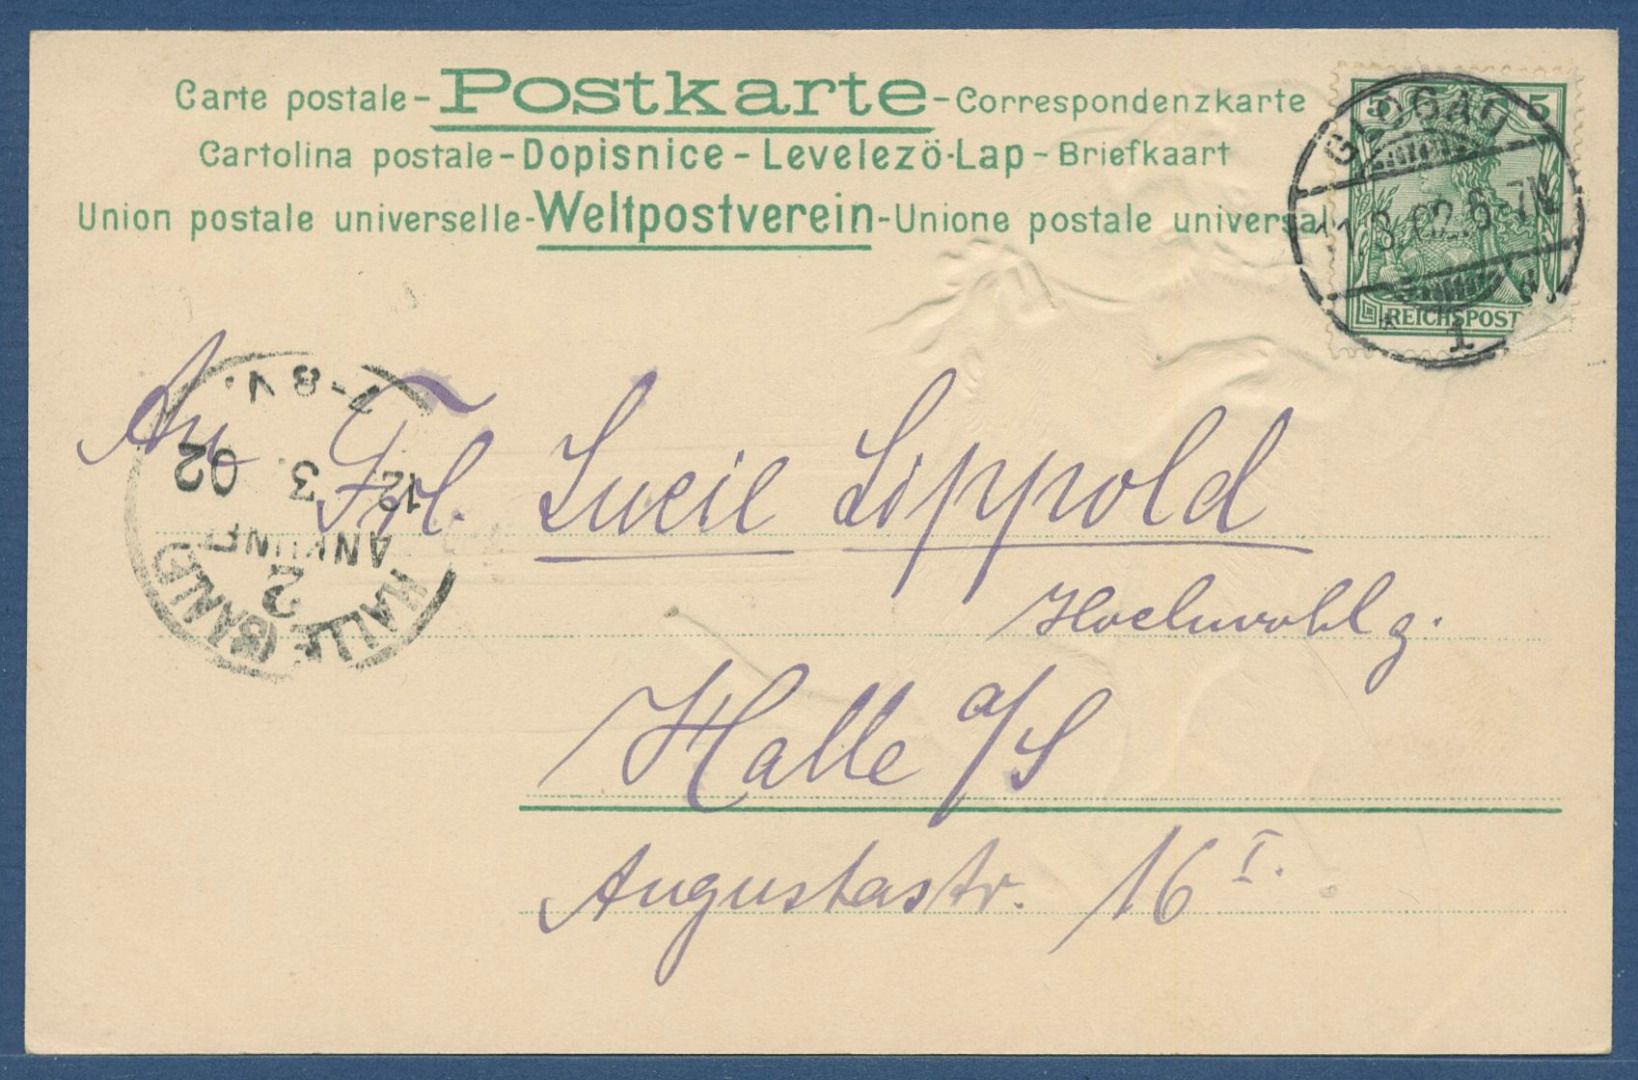 Carte postale - Postkarte - Correspondenzkarte
Cartolina postale - Dopisnice - Levelezö-Lap - Briefkaart
Union postale universelle - Weltpostverein - Unione postale universal
5 5
REICHSPOST
GLOGAU
11.3.02.6-7N
* 1
An Frl. Lucie Lippold
Hochwohlg.
Halle a/S
Augustastr. 16 I.
HALLE (SAALE)
2
ANKUNFT
12. 3. 02
7-8V.